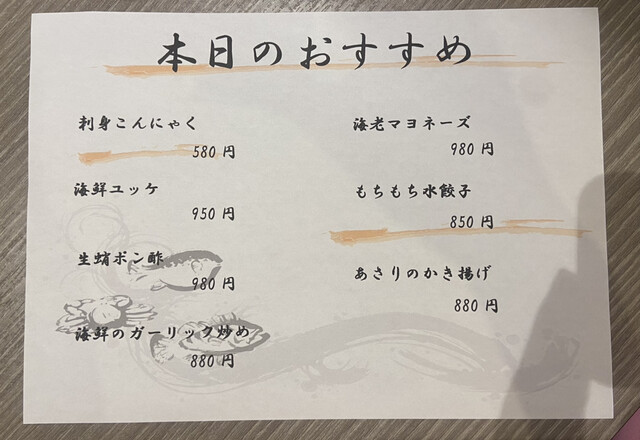 本日のおすすめ
刺身こんにゃく
580 円
海鮮ユッケ
950 円
生蛸ポン酢
980 円
海鮮のガーリック炒め
880 円
海老マヨネーズ
980 円
もちもち水餃子
850 円
あさりのかき揚げ
880 円